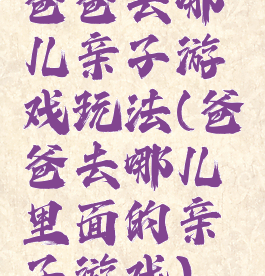 爸爸去哪
儿亲子游
戏玩法(爸
爸去哪儿
里面的亲
子游戏)